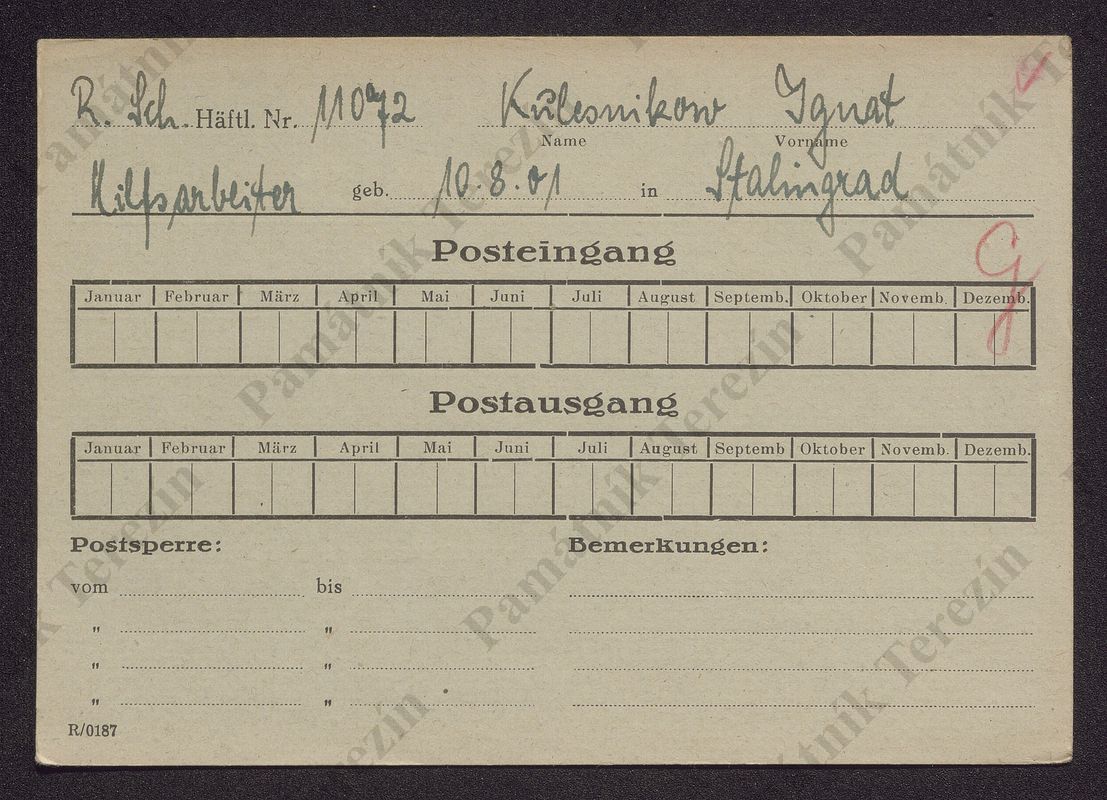 R. Sch. Häftl. Nr. 11072 Kulesnikow Ignat
Name Vorname
Hilfsarbeiter geb. 10.8.01 in Stalingrad
Posteingang
Januar Februar März April Mai Juni Juli August Septemb. Oktober Novemb. Dezemb.
G
Postausgang
Januar Februar März April Mai Juni Juli August Septemb Oktober Novemb. Dezemb.
Postsperre: Bemerkungen:
vom bis
" "
" "
" "
R/0187
Památník Terezín